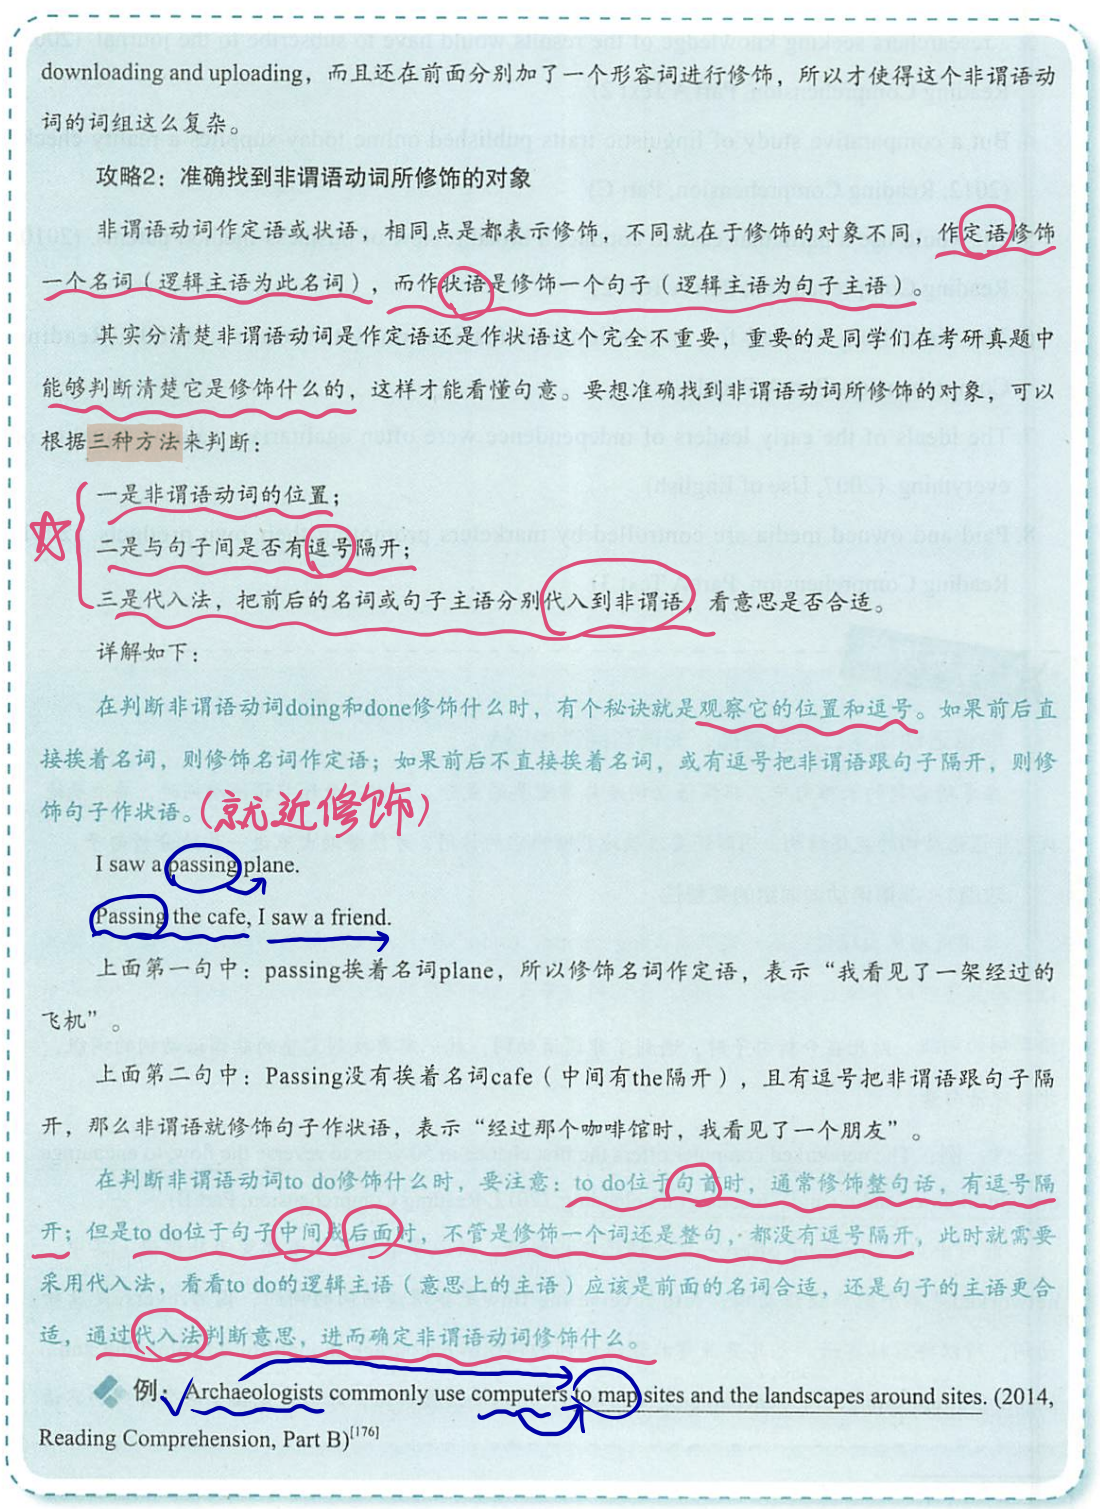 downloading and uploading，而且还在前面分别加了一个形容词进行修饰，所以才使得这个非谓语动
词的词组这么复杂。
攻略2：准确找到非谓语动词所修饰的对象
非谓语动词作定语或状语，相同点是都表示修饰，不同就在于修饰的对象不同，作定语修饰
一个名词（逻辑主语为此名词），而作状语是修饰一个句子（逻辑主语为句子主语）。
其实分清楚非谓语动词是作定语还是作状语这个完全不重要，重要的是同学们在考研真题中
能够判断清楚它是修饰什么的，这样才能看懂句意。要想准确找到非谓语动词所修饰的对象，可以
根据三种方法来判断：
一是非谓语动词的位置；
二是与句子间是否有逗号隔开；
三是代入法，把前后的名词或句子主语分别代入到非谓语，看意思是否合适。
详解如下：
在判断非谓语动词doing和done修饰什么时，有个秘诀就是观察它的位置和逗号。如果前后直
接挨着名词，则修饰名词作定语；如果前后不直接挨着名词，或有逗号把非谓语跟句子隔开，则修
饰句子作状语。（就近修饰）
I saw a passing plane.
Passing the cafe, I saw a friend.
上面第一句中：passing挨着名词plane，所以修饰名词作定语，表示“我看见了一架经过的
飞机”。
上面第二句中：Passing没有挨着名词cafe（中间有the隔开），且有逗号把非谓语跟句子隔
开，那么非谓语就修饰句子作状语，表示“经过那个咖啡馆时，我看见了一个朋友”。
在判断非谓语动词to do修饰什么时，要注意：to do位于句首时，通常修饰整句话，有逗号隔
开；但是to do位于句子中间或后面时，不管是修饰一个词还是整句，都没有逗号隔开，此时就需要
采用代入法，看看to do的逻辑主语（意思上的主语）应该是前面的名词合适，还是句子的主语更合
适，通过代入法判断意思，进而确定非谓语动词修饰什么。
例：Archaeologists commonly use computers to map sites and the landscapes around sites. (2014,
Reading Comprehension, Part B)[176]